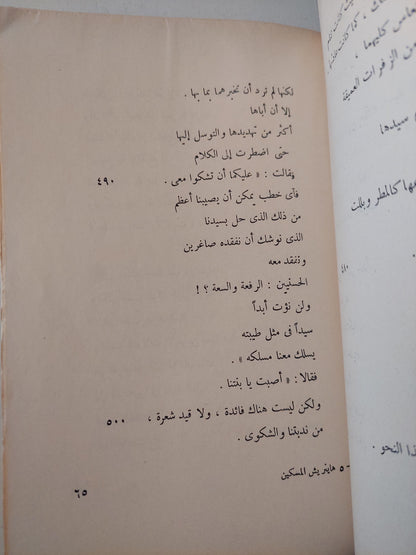 لكنها لم ترد أن تخبرهما بما بها .
إلا أن أباها
أكثر من تهديدها والتوسل إليها
حتى اضطرت إلى الكلام
فقالت : « عليكما أن تشكوا معى . ٤٩٠
فأى خطب يمكن أن يصيبنا أعظم
من ذلك الذى حل بسيدنا
الذى نوشك أن نفقده صاغرين
ونفقد معه
الحسنيين : الرفعة والسعة ؟ !
ولن نؤت أبداً
سيداً فى مثل طيبته
يسلك معنا مسلكه » .
فقالا : « أصبت يا بنتنا .
ولكن ليست هناك فائدة ، ولا قيد شعرة ، ٥٠٠
من ندبتنا والشكوى .
٥ هاينريش المسكين
٦٥
كليهما ،
من الزفرات العميقة
سيدها
كالمطر وبللت
٤١٠
النحو .